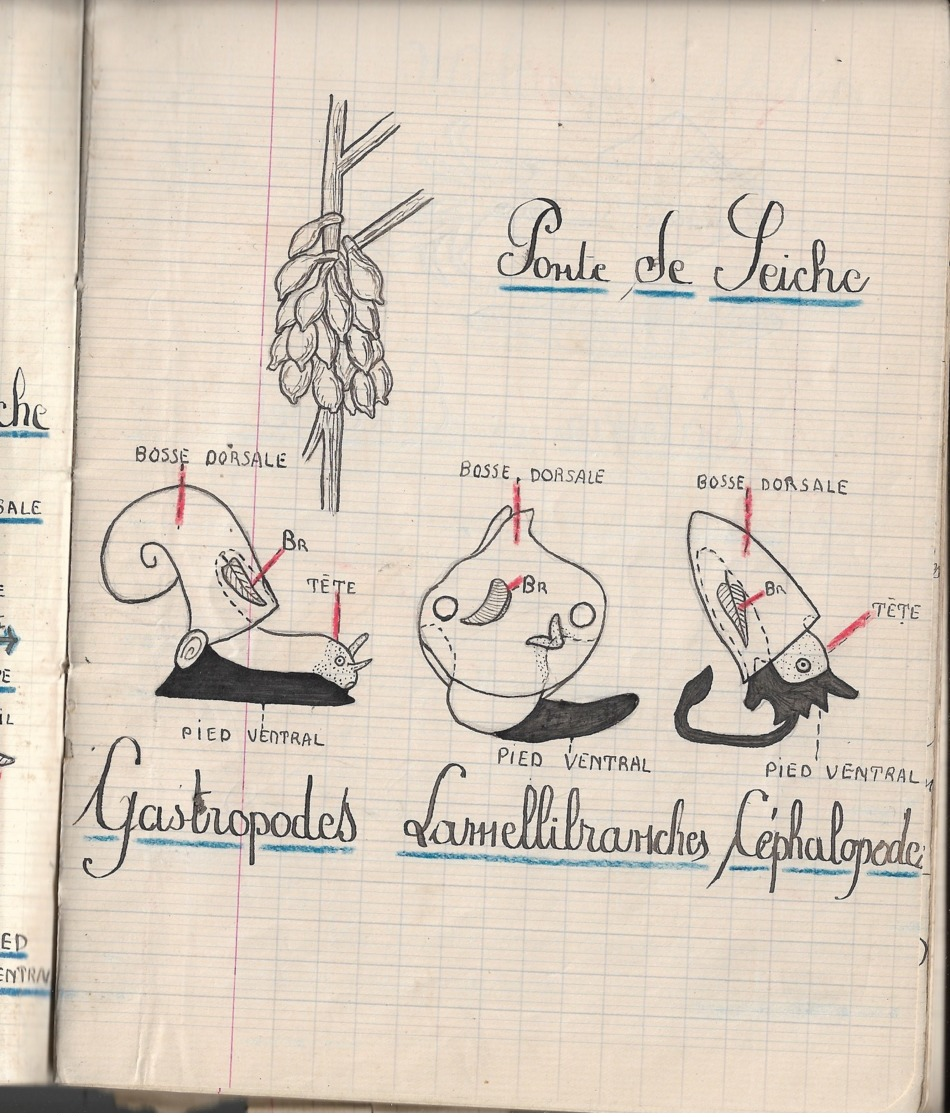 Ponte de Seiche
che
BOSSE DORSALE
BOSSE DORSALE
BOSSE DORSALE
SALE
BR
BR
BR
TÊTE
TÊTE
E
E
PE
IL
PIED VENTRAL
PIED VENTRAL
PIED VENTRAL
Gastropodes
Lamellibranches
Céphalopodes
ED
ENTRA